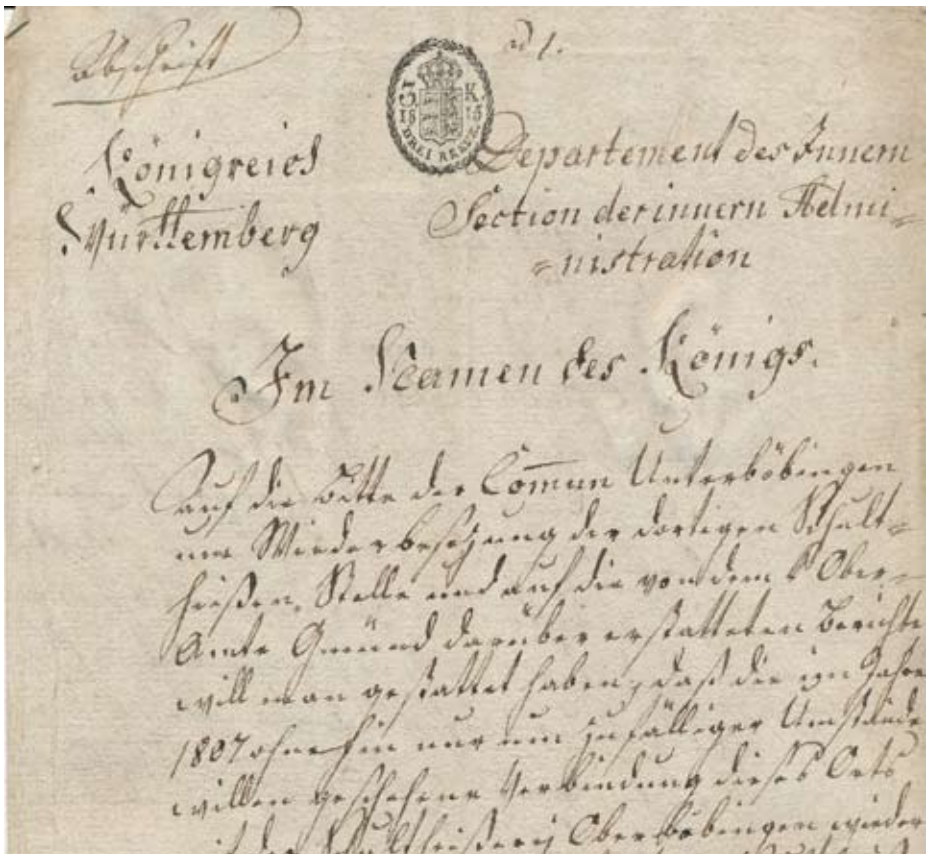 Abschrift
ad 1.
G. K.
18 15
DREI KREUZ.
Königreich
Württemberg
Departement des Innern
Section der innern Admi=
=nistration
Im Namen des Königs.
Auf die Bitte der Com̄un Unterböbingen
um Wiederbesezung der dortigen Schult=
heißen Stelle und auf die von dem K Ober=
Amte Gmünd darüber erstatteten Berichte
will man gestattet haben, daß die im Jahr
1807 ohnehin nur um zufälliger Umstände
willen geschehene Verbindung dieses Orts
mit der Schultheißerey Oberböbingen wieder